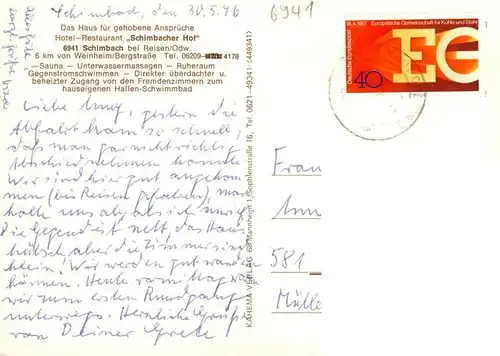 Schimbach, den 30.5.76
6941
Das Haus für gehobene Ansprüche
Hotel-Restaurant „Schimbacher Hof"
6941 Schimbach bei Reisen/Odw.
6 km von Weinheim/Bergstraße Tel. 06209-4178
Sauna - Unterwassermassagen - Ruheraum
Gegenstromschwimmen - Direkter überdachter u.
beheizter Zugang von den Fremdenzimmern zum
hauseigenen Hallen-Schwimmbad
Liebe, gestern die
Abfahrt kam so schnell,
daß man gar nicht richtig
Abschied nehmen konnte.
Wir sind hier gut angekom-
men (bis Reisen gefahren), man
holte uns ab, als ich anrief.
Die Gegend ist nett, das Haus
hübsch, aber die Zimmer sind
klein. Wir werden gut wandern
können. Heute vormittag waren
wir zum ersten Rundgang
unterwegs. Herzliche Grüße
von Deiner Grete!
KAHEMA VERLAG 68 Mannheim 1, Sophienstraße 16, Tel. 0621-49341 (4493411)
18.4.1951 Europäische Gemeinschaft für Kohle und Stahl
Deutsche Bundespost
40
EG
Frau
581
Mülle